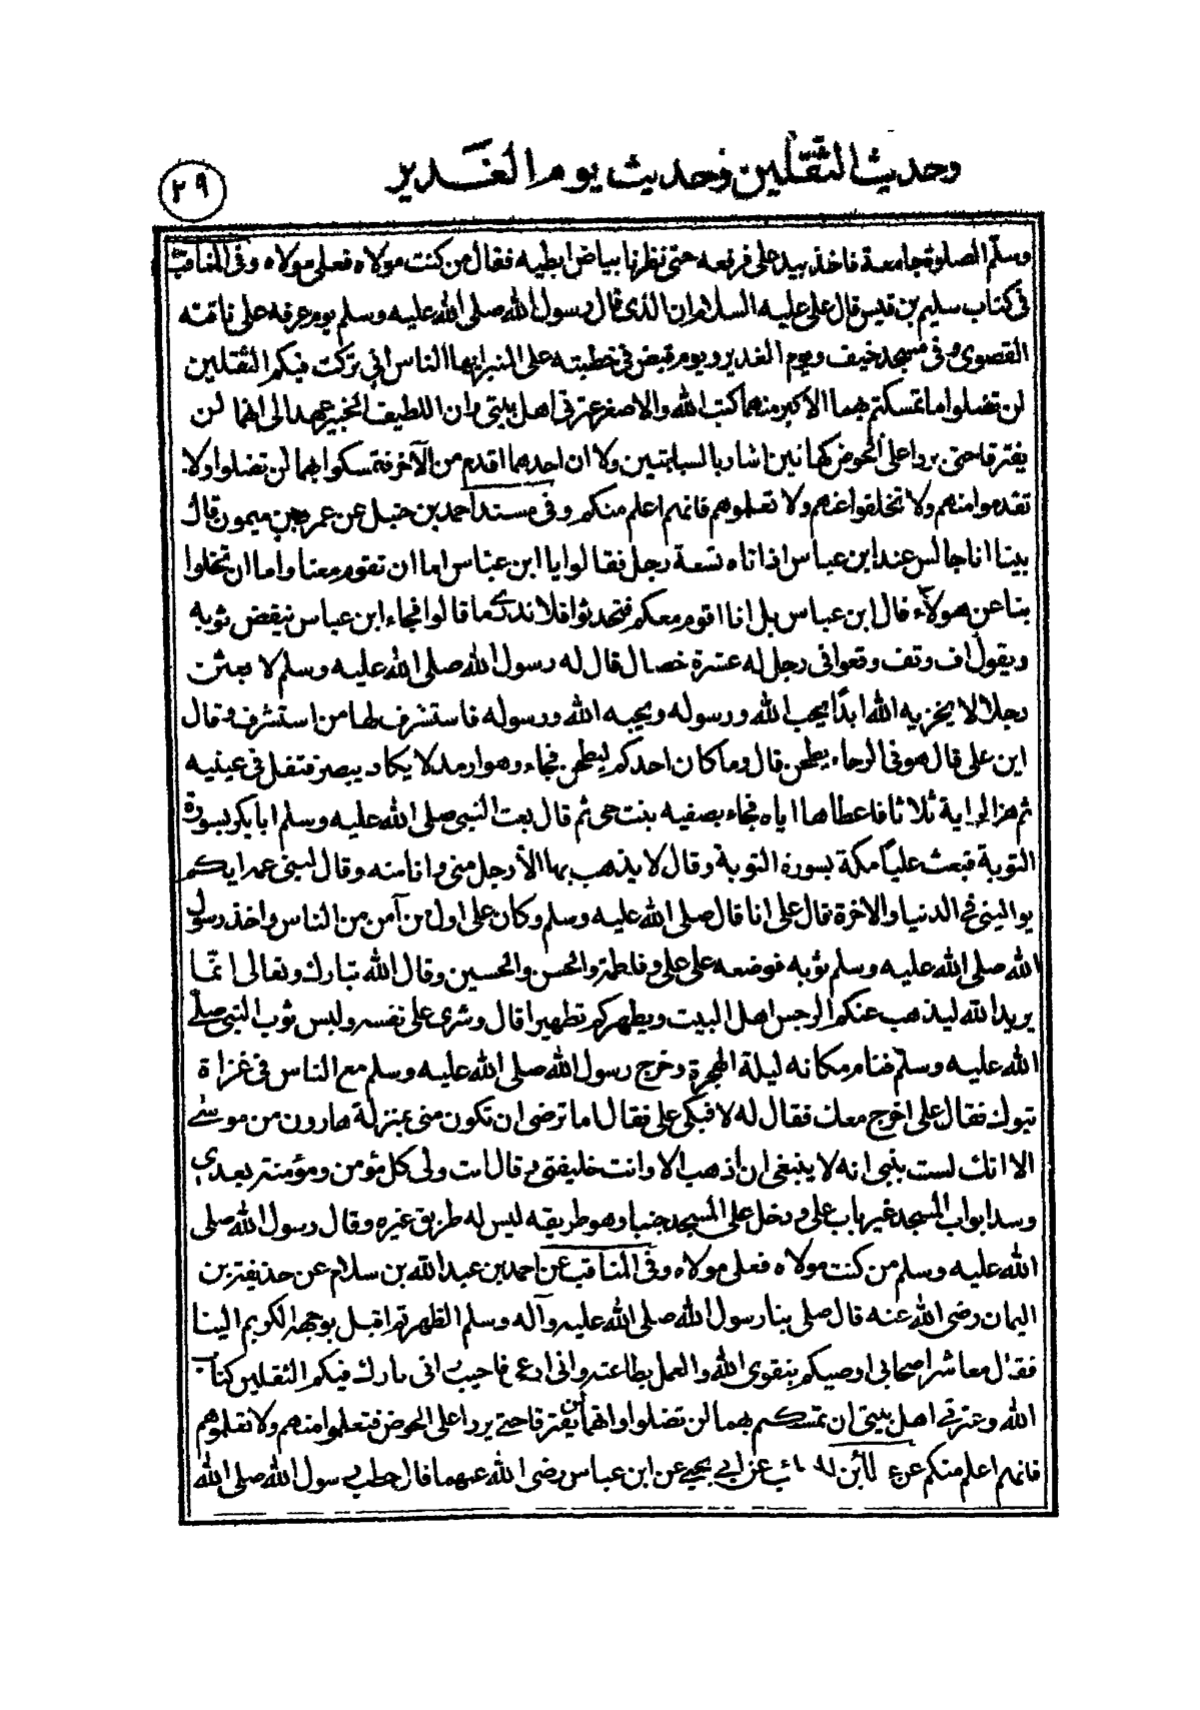 وحديث الثقلين وحديث يوم الغدير
٢٩
وسلم الصلوة جامعة فاخذ بيد علي فرفعه حتى نظرنا بياض ابطيه فقال من كنت مولاه فعلي مولاه وفي المناقب
في كتاب سليم بن قيس قال علي عليه السلام ان الذي قال رسول الله صلى الله عليه وسلم يوم عرفه على ناقته
القصوى وفي مسجد خيف ويوم الغدير ويوم قبض في خطبته على المنبر ايها الناس اني تركت فيكم الثقلين
لن تضلوا ما تمسكتم بهما الاكبر منهما كتب الله والاصغر عترتي اهل بيتي وان اللطيف الخبير عهد الى انهما لن
يفترقا حتى يردا على الحوض كهاتين اشار بالسبابتين ولا ان احدهما اقدم من الآخر فتمسكوا بهما لن تضلوا ولا
تقدموا منهم ولا تخلفوا عنهم ولا تعلموهم فانهم اعلم منكم وفي مسند احمد بن حنبل عن عمرو بن ميمون قال
بينا انا جالس عند ابن عباس اذ اتاه تسعة رجل فقالوا يا ابن عباس اما ان تقوم معنا واما ان تخلوا
بنا عن هولآء قال ابن عباس بل انا اقوم معكم فتحدثوا فلا ندري ما قالوا فجاء ابن عباس ينفض ثوبه
ويقول اف وتف وقعوا في رجل له عشرة خصال قال له رسول الله صلى الله عليه وسلم لا بعثن
رجلا لا يخزيه الله ابدًا يحب الله ورسوله ويحبه الله ورسوله فاستشرف لها من استشرف وقال
اين علي قال هو في الرحاء يطحن قال وما كان احدكم ليطحن فجاء وهو ارمد لا يكاد يبصر فتفل في عينيه
ثم هز الراية ثلاثا فاعطاها اياه فجاء بصفيه بنت حي ثم قال بعث النبي صلى الله عليه وسلم ابا بكر بسورة
التوبة فبعث عليا مكة بسورة التوبة وقال لا يذهب بها الا رجل مني وانا منه وقال لبني عمه ايكم
يواليني في الدنيا والاخرة قال علي انا قال صلى الله عليه وسلم وكان علي اول من آمن من الناس واخذ رسول
الله صلى الله عليه وسلم ثوبه فوضعه على علي وفاطمة والحسن والحسين وقال الله تبارك وتعالى انّما
يريد الله ليذهب عنكم الرجس اهل البيت ويطهركم تطهيرا قال وشرى علي نفسه ولبس ثوب النبي صلى
الله عليه وسلم فنام مكانه ليلة الهجرة وخرج رسول الله صلى الله عليه وسلم مع الناس في غزاة
تبوك فقال علي اخرج معك فقال له لا فبكى علي فقال اما ترضى ان تكون مني بمنزلة هارون من موسى
الا انك لست بنبي انه لا ينبغي ان اذهب الا وانت خليفتي قال انت ولي كل مؤمن ومؤمنة بعدي
وسد ابواب المسجد غير باب علي ودخل علي المسجد جنبا وهو طريقه ليس له طريق غيره وقال رسول الله صلى
الله عليه وسلم من كنت مولاه فعلي مولاه وفي المناقب عن احمد بن عبد الله بن سلام عن حذيفة بن
اليمان رضي الله عنه قال صلى بنا رسول الله صلى الله عليه وآله وسلم الظهر ثم اقبل بوجهه الكريم الينا
فقال معاشر اصحابي اوصيكم بتقوى الله والعمل بطاعته واني ادعى فاجيب اني تارك فيكم الثقلين كتاب
الله وعترتي اهل بيتي ان تمسكتم بهما لن تضلوا وانهما لن يفترقا حتى يردا على الحوض فتعلموا منهم ولا تعلموهم
فانهم اعلم منكم عن ابي يحيى عن ابن عباس رضي الله عنهما قال خطب رسول الله صلى الله